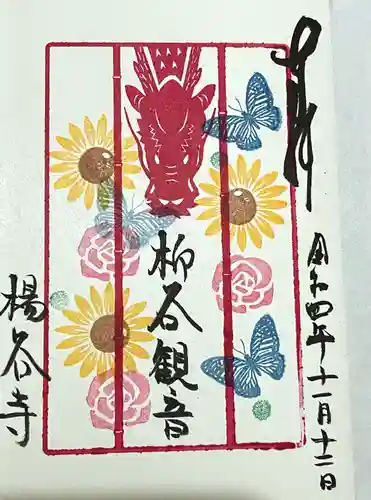 奉拝
令和四年十一月十二日
柳谷観音
楊谷寺